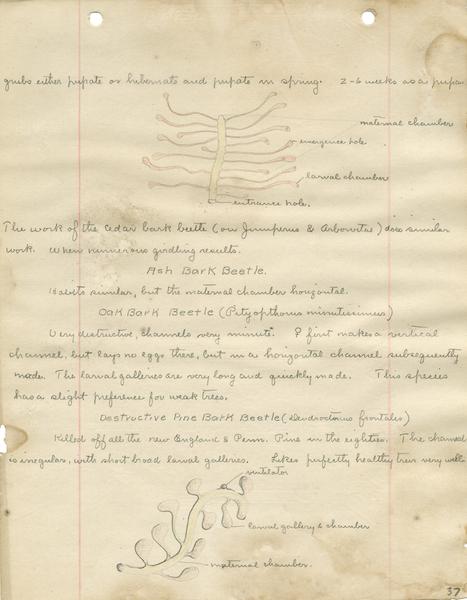 grubs either pupate or hibernate and pupate in spring. 2-6 weeks as a pupa
maternal chamber
emergence hole
larval chamber
entrance hole.
The work of the cedar bark beetle (on Juniperus & Arborvitae) does similar
work. When numerous girdling results.
Ash Bark Beetle.
Habits similar, but the maternal chamber horizontal.
Oak Bark Beetle (Pityopthorus minutissimus)
Very destructive, channels very minute. ♀ first makes a vertical
channel, but lays no eggs there, but in a horizontal channel subsequently
made. The larval galleries are very long and quickly made. This species
has a slight preference for weak trees.
Destructive Pine Bark Beetle (Dendroctonus frontales)
Killed off all the new England & Penn. Pine in the eighties. The channel
is irregular, with short broad larval galleries. Likes perfectly healthy trees very well.
ventilator
larval gallery & chamber
maternal chamber.
37